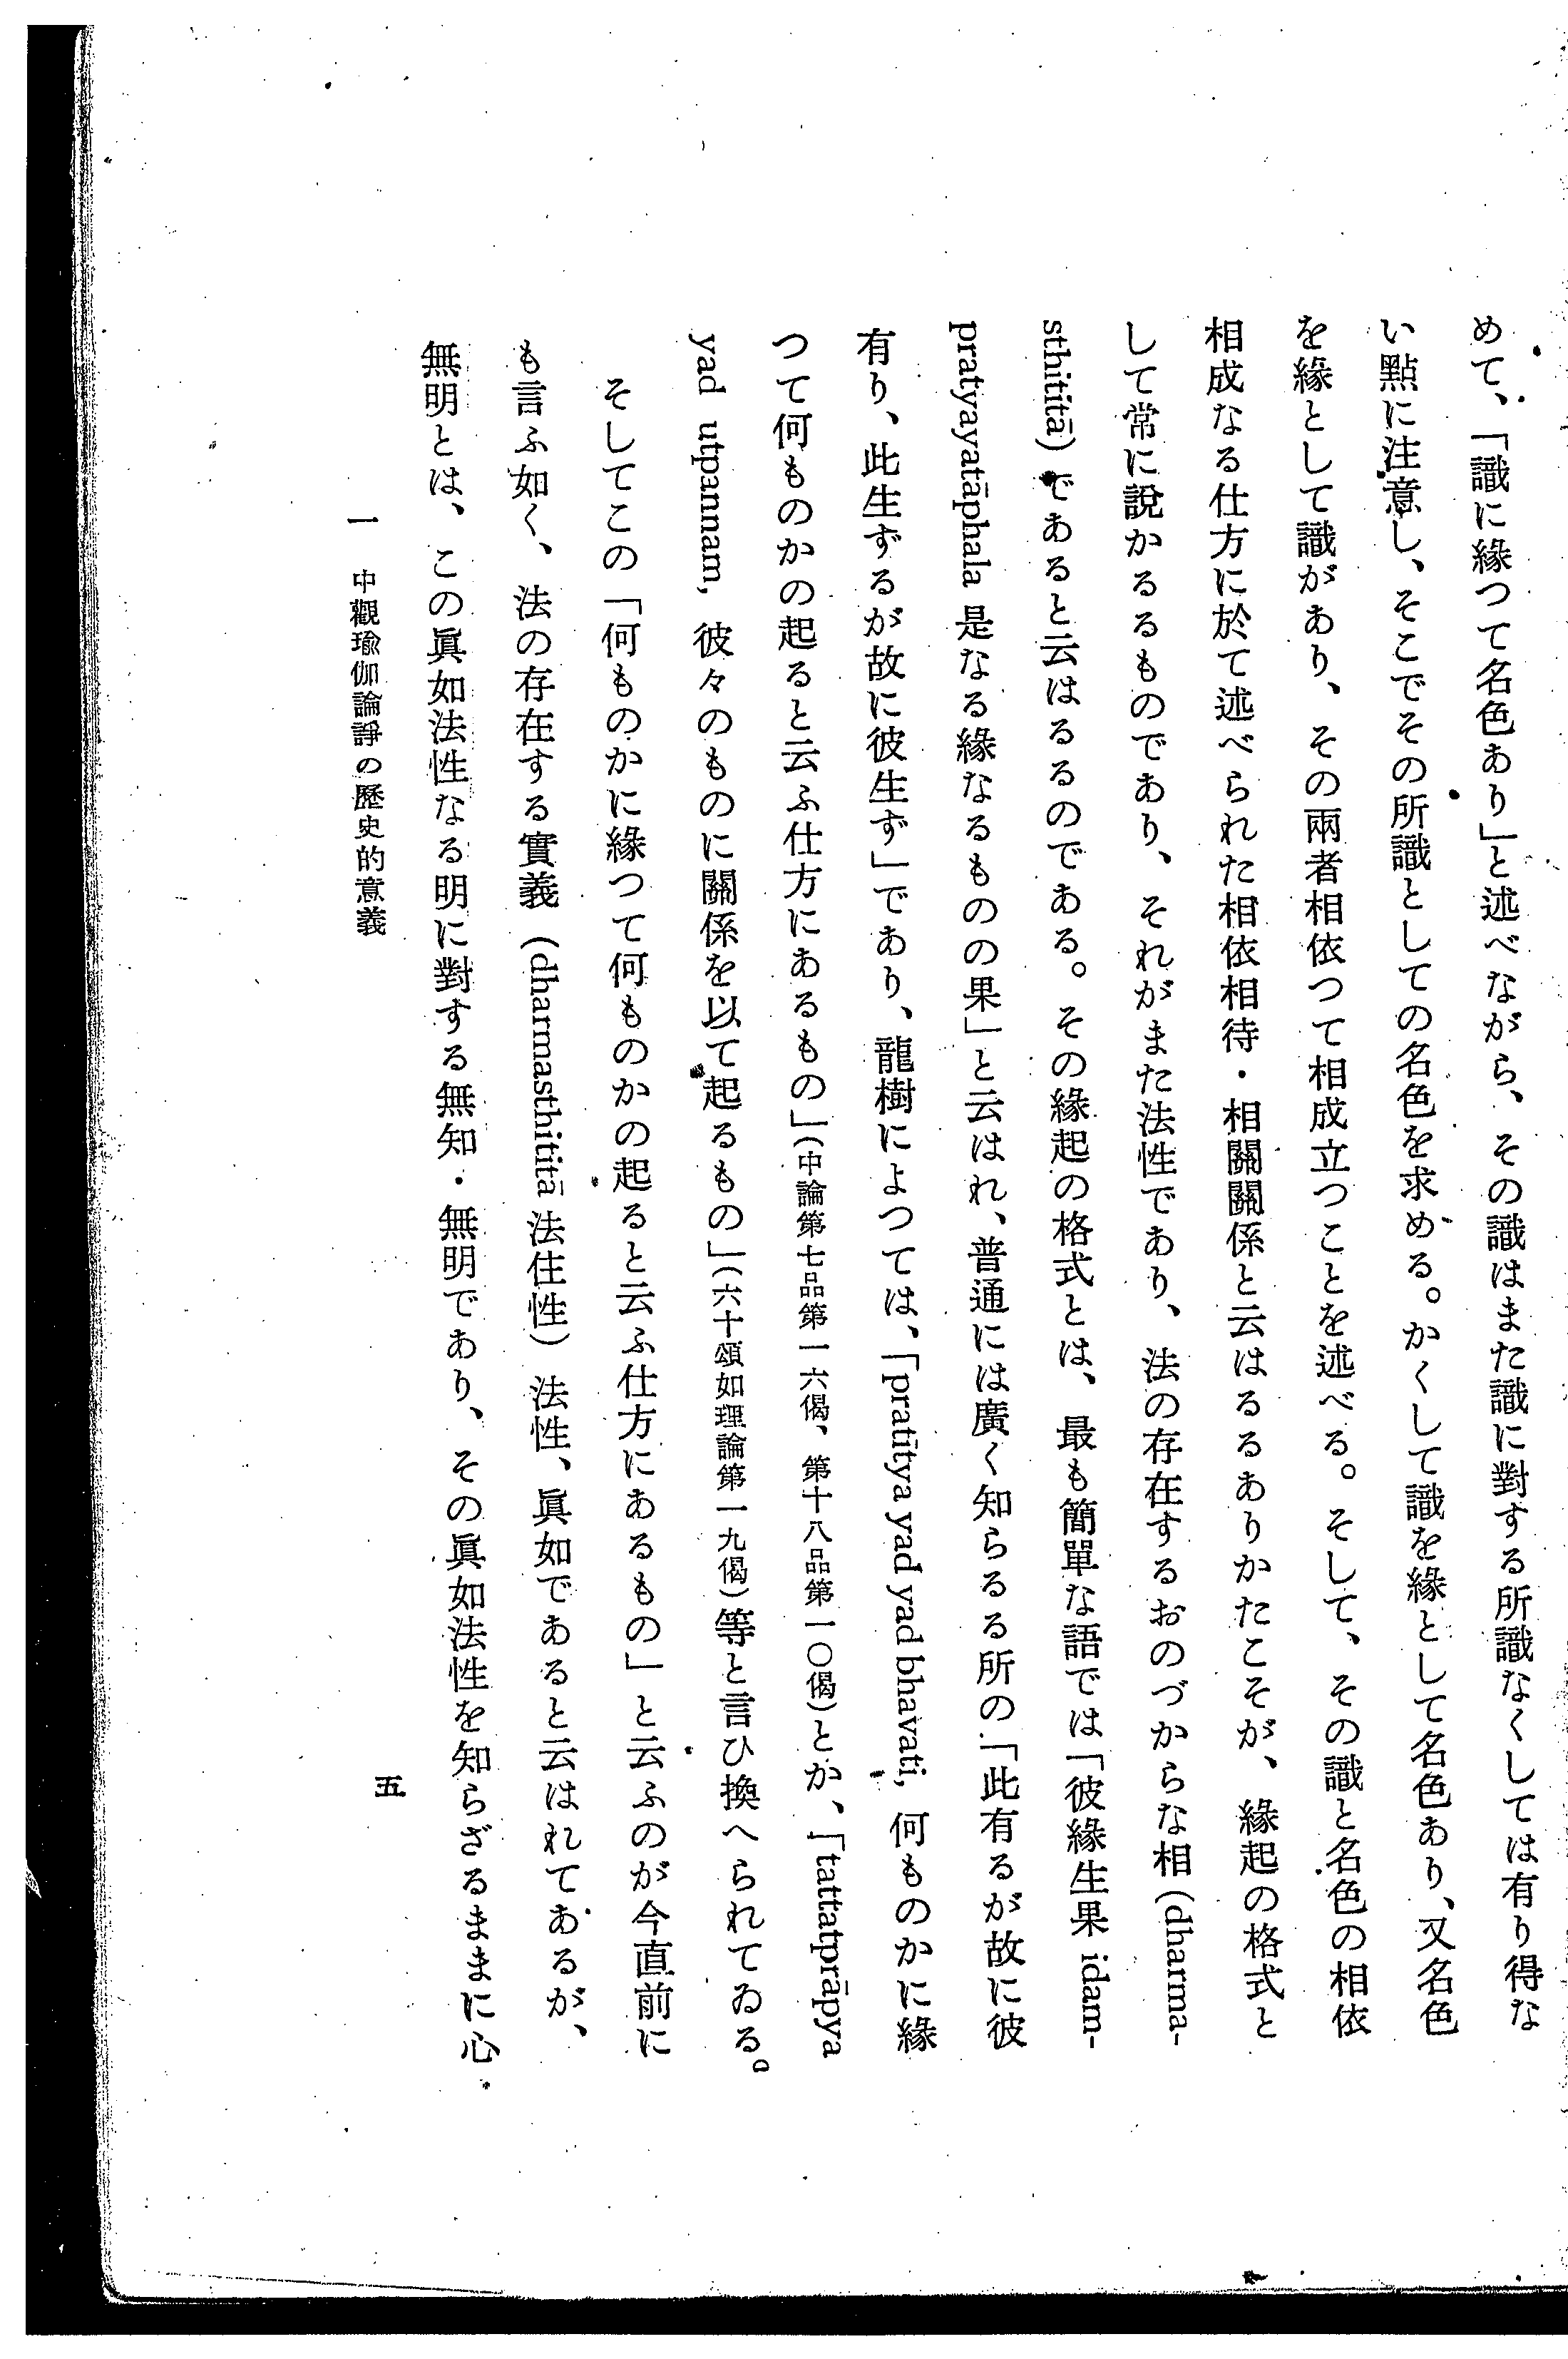 めて、「識に緣つて名色あり」と述べながら、その識はまた識に對する所識なくしては有り得な
い點に注意し、そこでその所識としての名色を求める。かくして識を緣として名色あり、又名色
を緣として識があり、その兩者相依つて相成立つことを述べる。そして、その識と名色の相依
相成なる仕方に於て述べられた相依相待・相關關係と云はるるありかたこそが、緣起の格式と
して常に說かるるものであり、それがまた法性であり、法の存在するおのづからな相(dharma-
sthititā)であると云はるるのである。その緣起の格式とは、最も簡單な語では「彼緣生果 idam-
pratyayatāphala 是なる緣なるものの果」と云はれ、普通には廣く知らるる所の「此有るが故に彼
有り、此生ずるが故に彼生ず」であり、龍樹によつては、「pratītya yad yad bhavati, 何ものかに緣
つて何ものかの起ると云ふ仕方にあるもの」(中論第七品第一六偈、第十八品第一〇偈)とか、「tattatprāpya
yad utpannam, 彼々のものに關係を以て起るもの」(六十頌如理論第一九偈)等と言ひ換へられてゐる。
そしてこの「何ものかに緣つて何ものかの起ると云ふ仕方にあるもの」と云ふのが今直前に
も言ふ如く、法の存在する實義 (dharmasthititā 法住性) 法性、眞如であると云はれてあるが、
無明とは、この眞如法性なる明に對する無知・無明であり、その眞如法性を知らざるままに心
一 中觀瑜伽論諍の歷史的意義
五